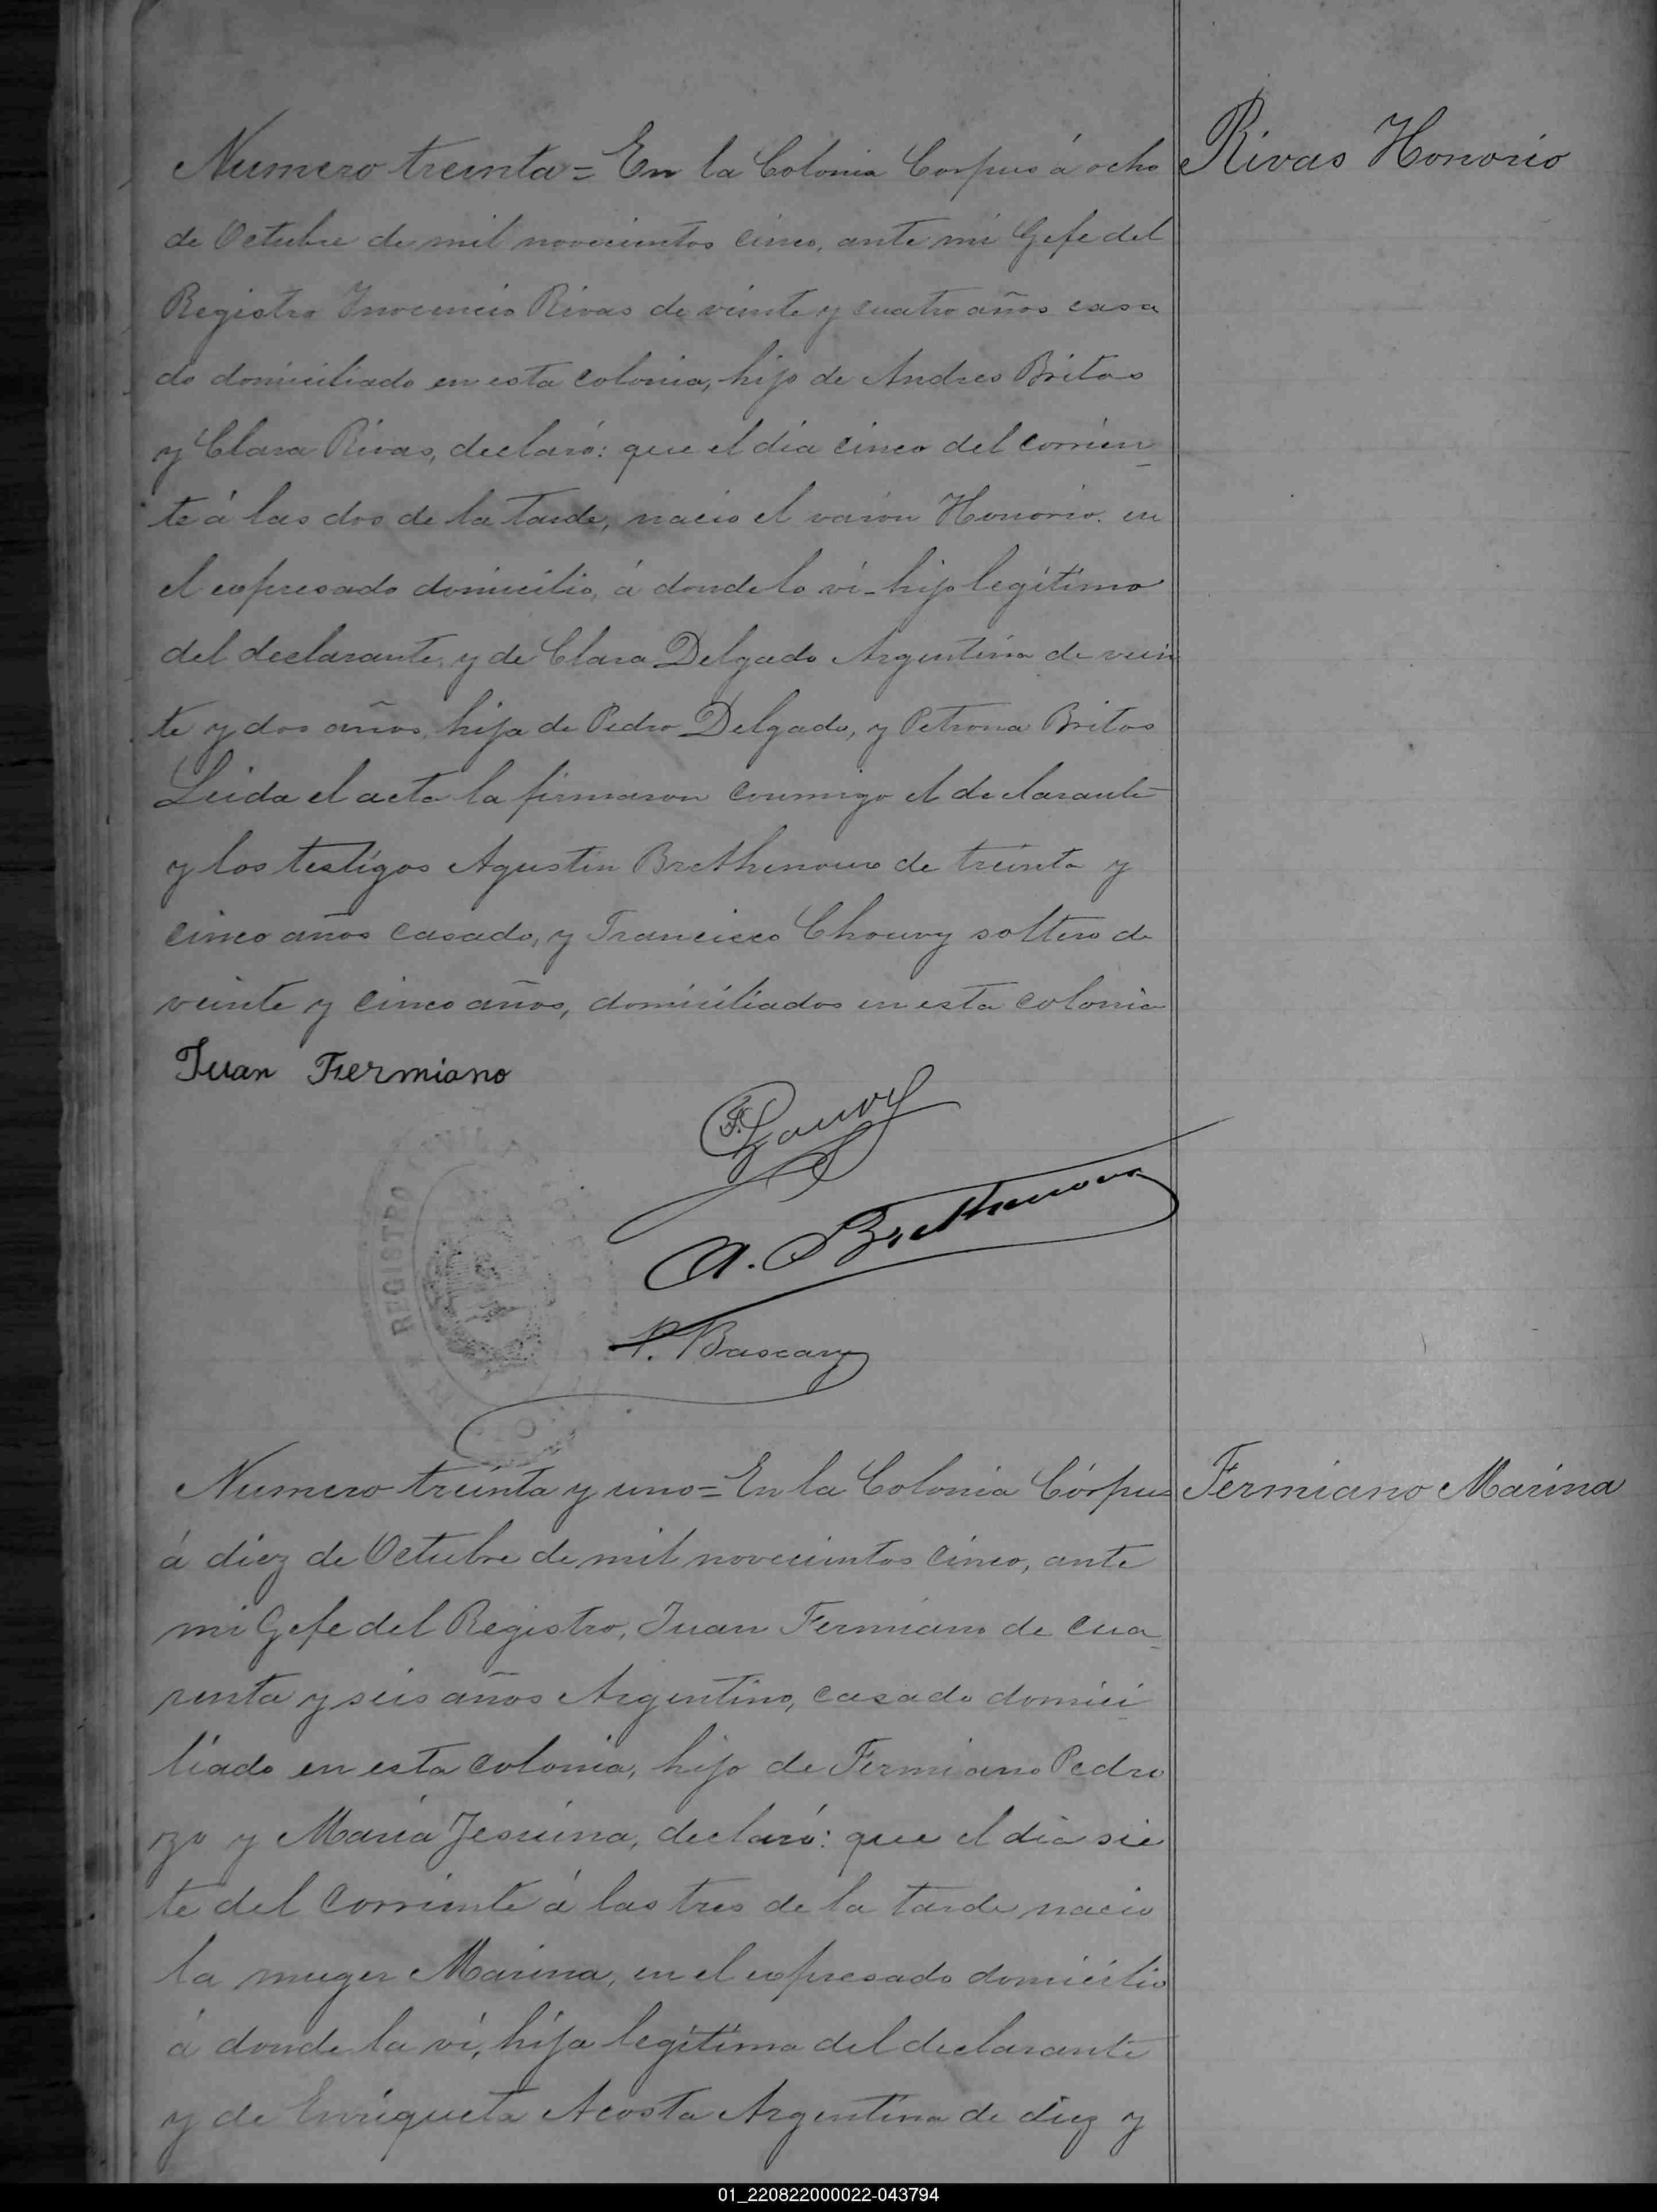 Rivas Honorio
Numero treinta = En la Colonia Corpus á ocho
de Octubre de mil novecientos cinco, ante mi Gefe del
Registro Inocencio Rivas de veinte y cuatro años casa
do domiciliado en esta colonia, hijo de Andres Britos
y Clara Rivas, declaró: que el dia cinco del corrien
te á las dos de la tarde, nacio el varon Honorio. en
el expresado domicilio, á donde lo ví - hijo legítimo
del declarante, y de Clara Delgado Argentina de vein
te y dos años, hija de Pedro Delgado, y Petrona Britos
Leida el acta la firmaron conmigo el declarante
y los testigos Agustin Brethenoux de treinta y
cinco años casado, y Francisco Chouvy soltero de
veinte y cinco años, domiciliados en esta colonia
Juan Fermiano
A. Brethenoux
REGISTRO CIVIL
P. Bascary
Fermiano Marina
Numero treinta y uno = En la Colonia Córpus
á diez de Octubre de mil novecientos cinco, ante
mi Gefe del Registro, Juan Fermiano de cua
renta y seis años Argentino, casado domici
liado en esta colonia, hijo de Fermiano Pedro
zo y María Jesuina, declaró: que el dia sie
te del corriente á las tres de la tarde nacio
la muger Marina, en el expresado domicilio
á donde la ví, hija legítima del declarante
y de Enriqueta Acosta Argentina de diez y
01_220822000022-043794